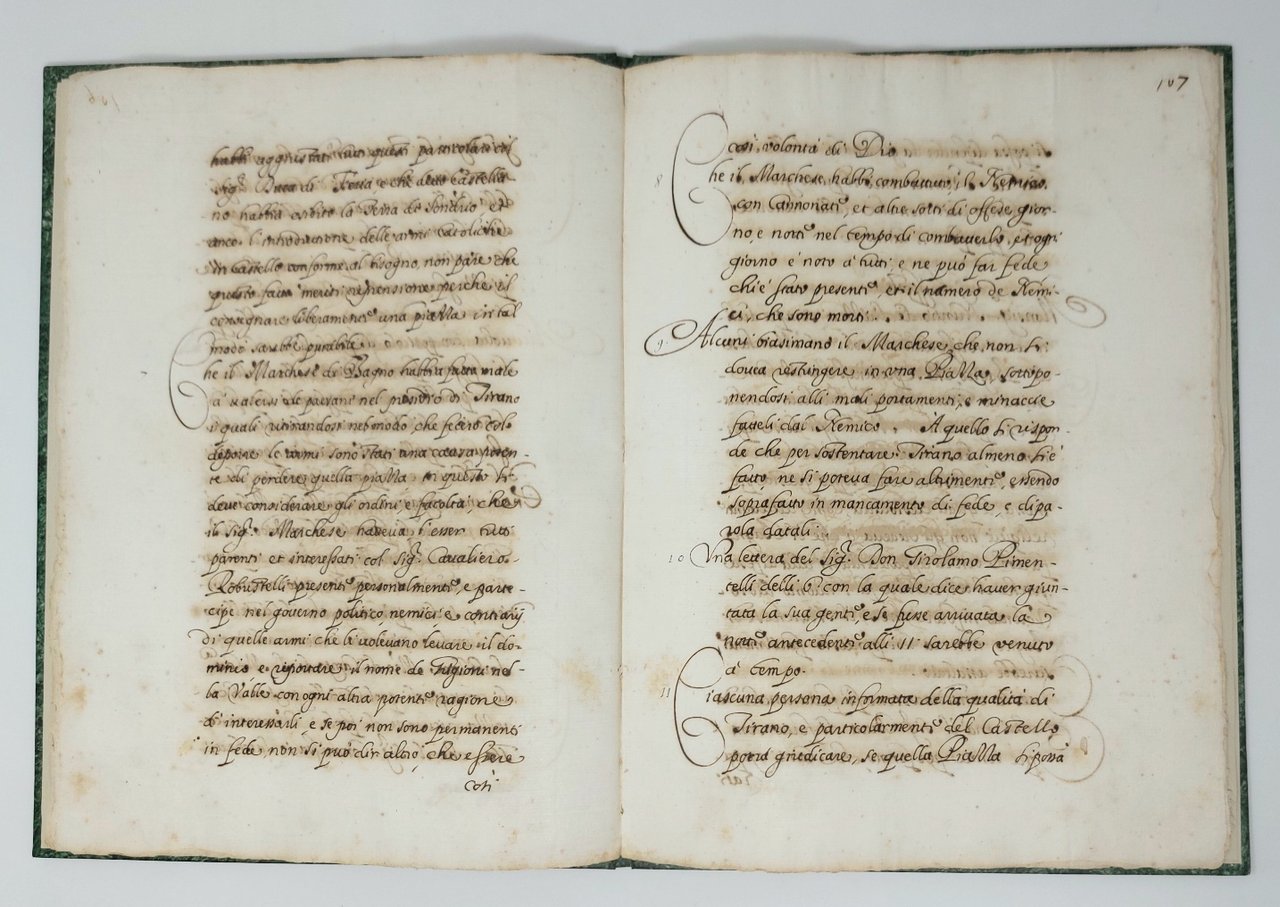 habbi aggiustati tutti questi particolari col
Sig.r Duca di Feria e che detto Castella-
no habbia ardito la Terra de Sondrio et
anco l'introduttione delle armi Catoliche
in Castello conforme al bisogno, non pare che
questo fatto meriti riprensione perche il
consegnare liberamente una piazza in tal
modo sarebbe punibile
Che il Marchese di Bagno habbia fatto male
a valersi de paesani nel presidio di Tirano
i quali ritirandosi nel modo, che fecero col
deporre le armi sono stati una causa poten-
te di perdere quella piazza in questo si
deve considerare gli ordini, e facoltà, che
il sig.r Marchese haveva l'esser tutti
parenti et interessati col sig.r Cavaliero
Robustelli presenti personalmente, e parte-
cipe nel governo politico nemici e contrarij
di quelle armi che li volevano levare il do-
minio e riportare il nome de Grigioni nel-
la Valle con ogni altra potente ragione
di interessarli, e se poi non sono permanenti
in fede non si può dir altro, che essere
così
107
così volontà di Dio
8 Che il Marchese habbi combattuto il Nemico
con Cannonate, et altre sorti di offese, gior-
no, e notte nel tempo di combatterlo, et ogni
giorno è noto à tutti e ne può far fede
chi è stato presente, et il numero de Nemi-
ci, che sono morti
9 Alcuni biasimano il Marchese che non si
dovea restringere in una Piazza, sottopo-
nendosi alli mali portamenti, e minaccie
fatteli dal Nemico. A quello si rispon-
de che per sostentare Tirano almeno si è
fatto, ne si poteva fare altrimenti, essendo
soprafatto in mancamento di fede, e di pa-
rola datali
10 Una lettera del Sig.r Don Girolamo Pimen-
telli delli 6 con la quale dice haver giun-
tata la sua gente, e se fusse arrivata la
notte antecedente alli 11 sarebbe venuto
à tempo.
11 Ciascuna persona informata della qualità di
Tirano, e particolarmente del Castello
potrà giudicare, se quella Piazza si potta